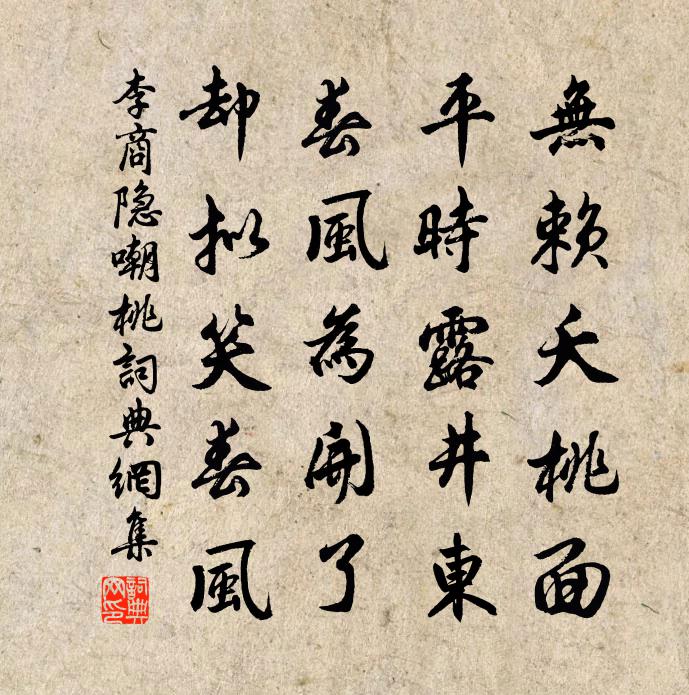 無赖夭桃面
平時露井東
春風為開了
却拟笑春風
李商隐嘲桃詞典網集
詞典網印